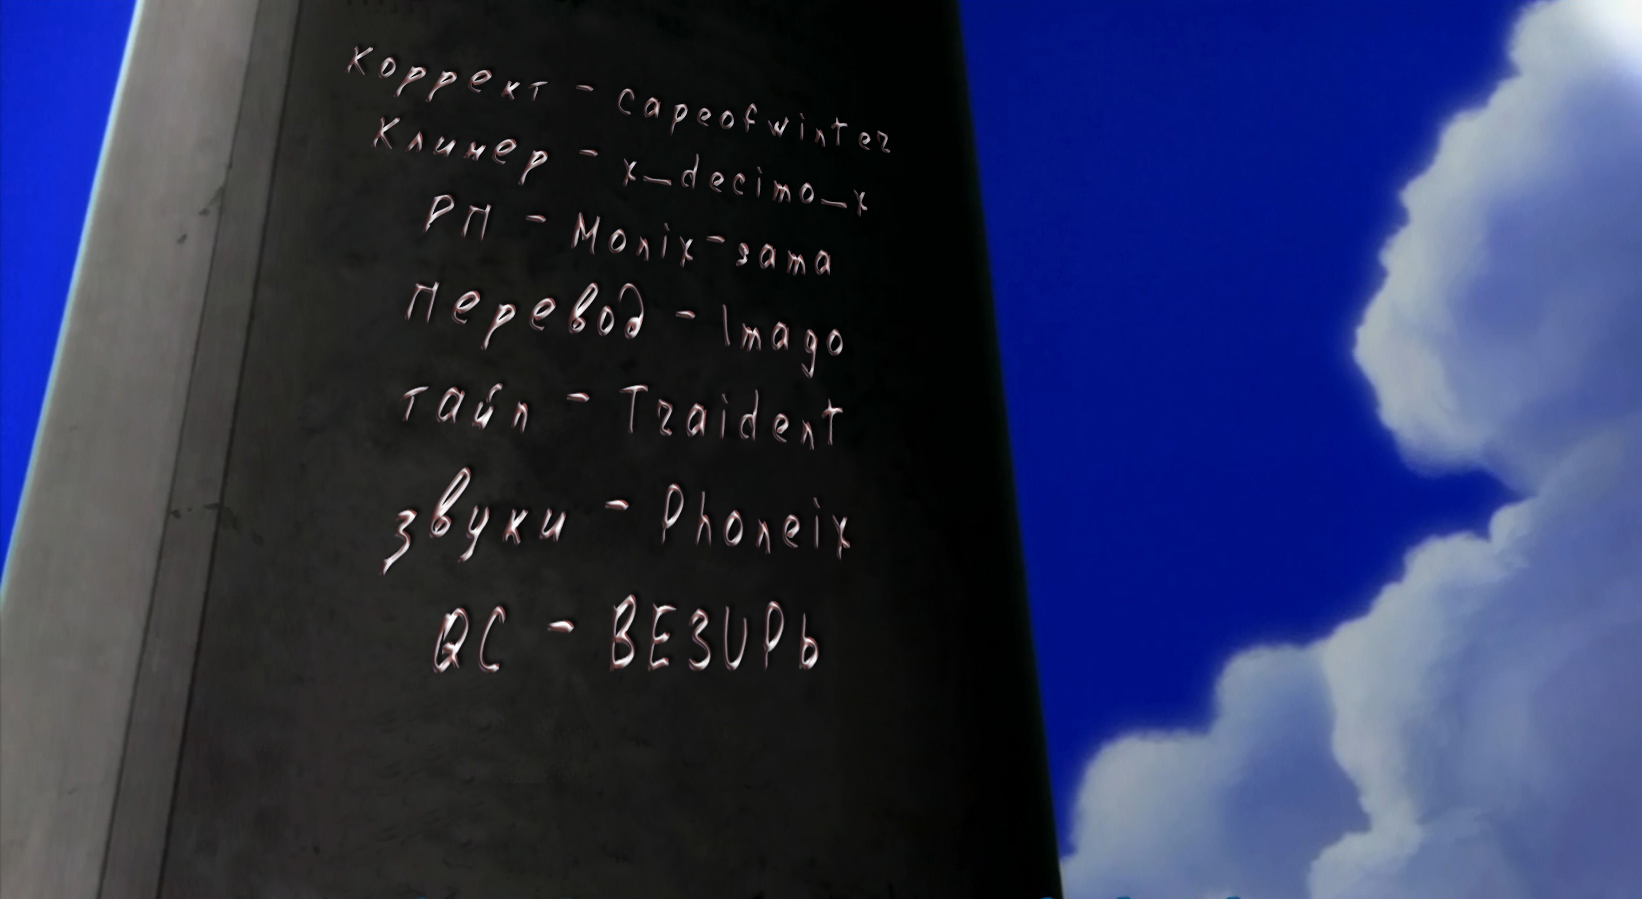 Коррект - capeofwinter
Клинер - x_decimo_x
РП - Monix-sama
Перевод - Imago
тайп - Traident
звуки - Phoneix
QC - ВЕЗИРЬ